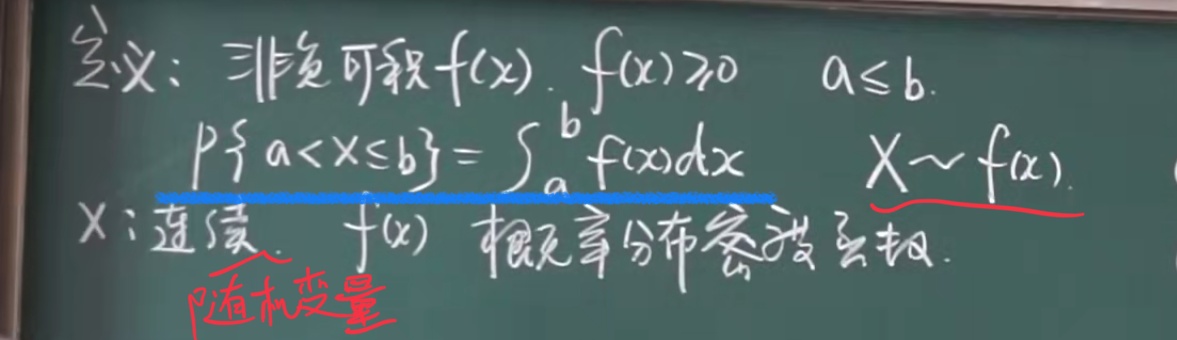 定义: 非负可积f(x). f(x)≥0 a≤b.
P{a<X≤b}=∫ₐᵇf(x)dx X~f(x).
X:连续. f(x) 概率分布密度函数.
随机变量